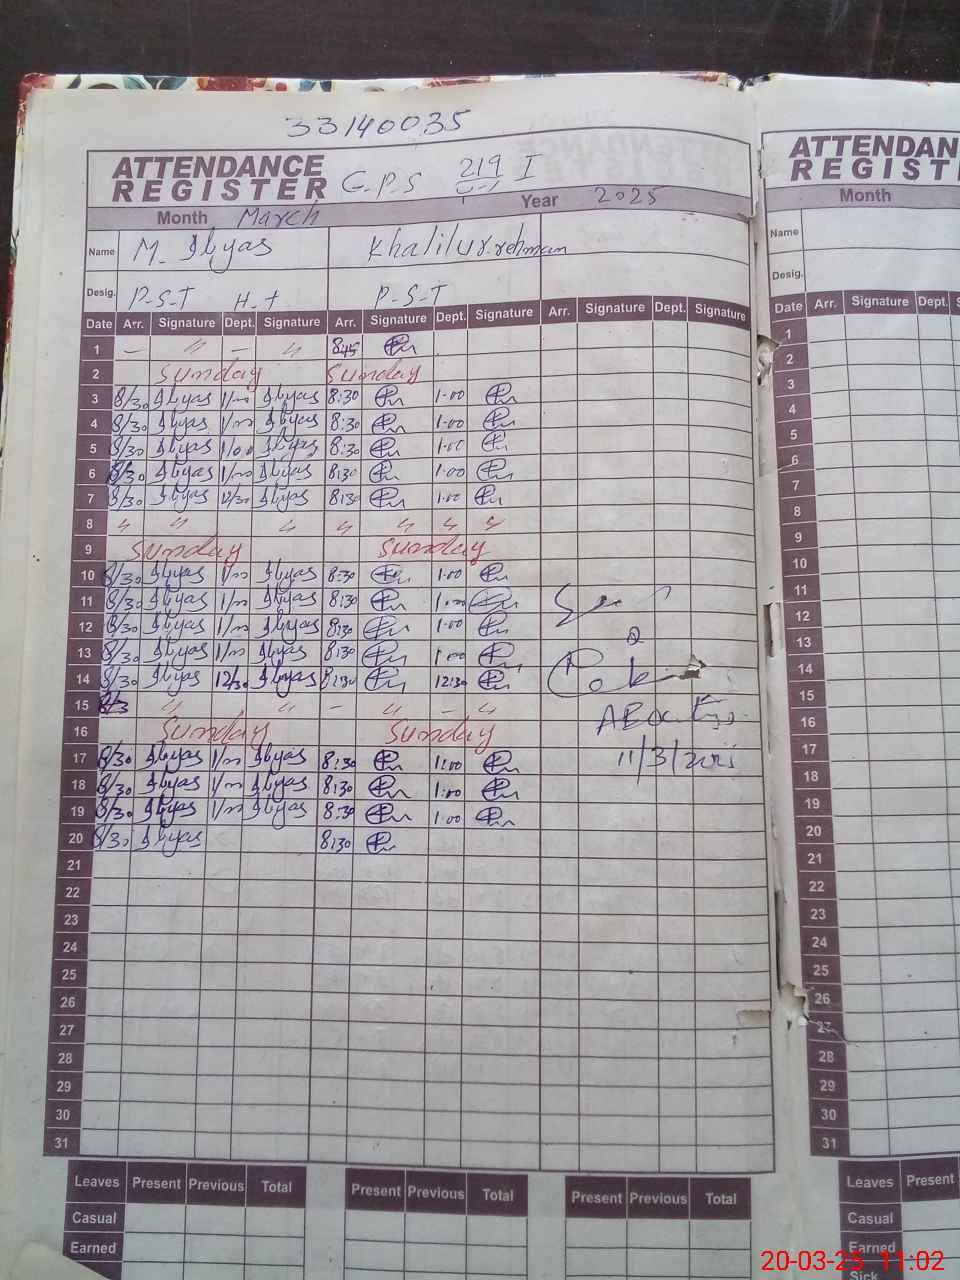 33140035
ATTENDANCE
REGISTER G.P.S 219 I
Month March Year 2025
Name M. Ilyas Khalilur.rehman
Desig. P-S-T H.t P-S-T
Date Arr. Signature Dept. Signature Arr. Signature Dept. Signature Arr. Signature Dept. Signature
1 — 〃 — 〃 8:45
2 Sunday Sunday
3 8/30 Ilyas 1/00 Ilyas 8:30 1:00
4 8/30 Ilyas 1/00 Ilyas 8:30 1:00
5 8/30 Ilyas 1/00 Ilyas 8:30 1:00
6 8/30 Ilyas 1/00 Ilyas 8:30 1:00
7 8/30 Ilyas 12/30 Ilyas 8:30 1:00
8 〃 〃 〃 〃 〃 〃 〃
9 Sunday Sunday
10 8/30 Ilyas 1/00 Ilyas 8:30 1:00
11 8/30 Ilyas 1/00 Ilyas 8:30 1:00
12 8/30 Ilyas 1/00 Ilyas 8:30 1:00
13 8/30 Ilyas 1/00 Ilyas 8:30 1:00
14 8/30 Ilyas 12/30 Ilyas 8:30 12:30
15 〃 〃 — 〃 — 〃
16 Sunday Sunday
17 8/30 Ilyas 1/00 Ilyas 8:30 1:00
11/3/2025
18 8/30 Ilyas 1/00 Ilyas 8:30 1:00
19 8/30 Ilyas 1/00 Ilyas 8:30 1:00
20 8/30 Ilyas 8:30
21
22
23
24
25
26
27
28
29
30
31
Leaves Present Previous Total Present Previous Total Present Previous Total
Casual
Earned
ATTENDAN
REGIST
Month
Name
Desig.
Date Arr. Signature Dept. S
1
2
3
4
5
6
7
8
9
10
11
12
13
14
15
16
17
18
19
20
21
22
23
24
25
26
27
28
29
30
31
Leaves Present
Casual
Earned
Sick
20-03-25 11:02